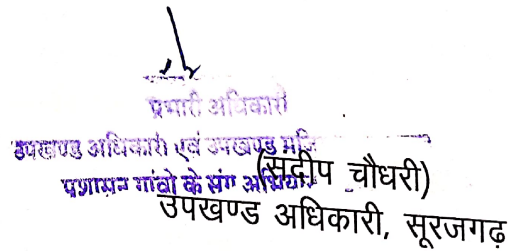 प्रभारी अधिकारी
उपखण्ड अधिकारी एवं उपखण्ड
प्रशासन गांवो के संग अभियान
(संदीप चौधरी)
उपखण्ड अधिकारी, सूरजगढ़